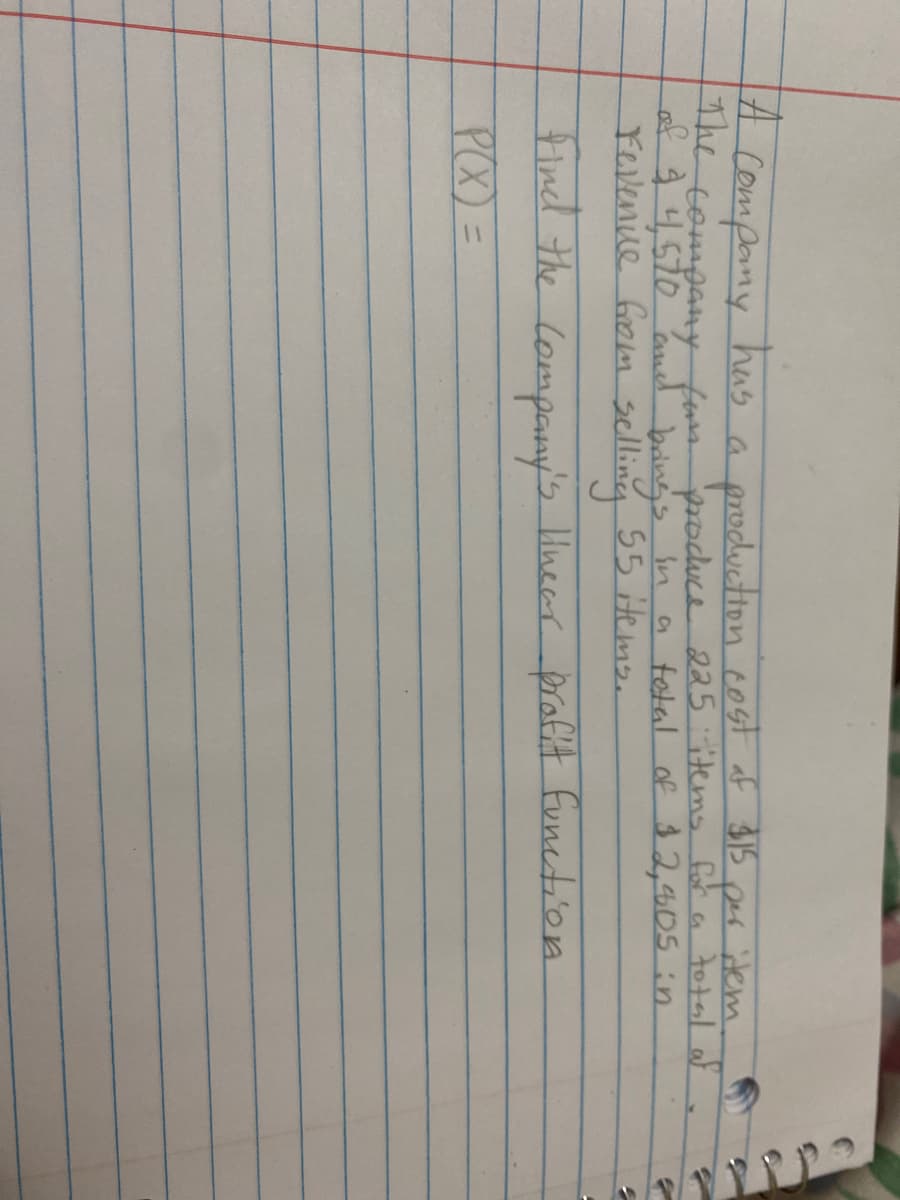 A Company has a production cost of $15 per item.
The company can produce 225 items for a total of
of $ 4,570 and brings in a total of $ 2,805 in
revenue from selling 55 items.
find the company's linear profit function
P(X) =